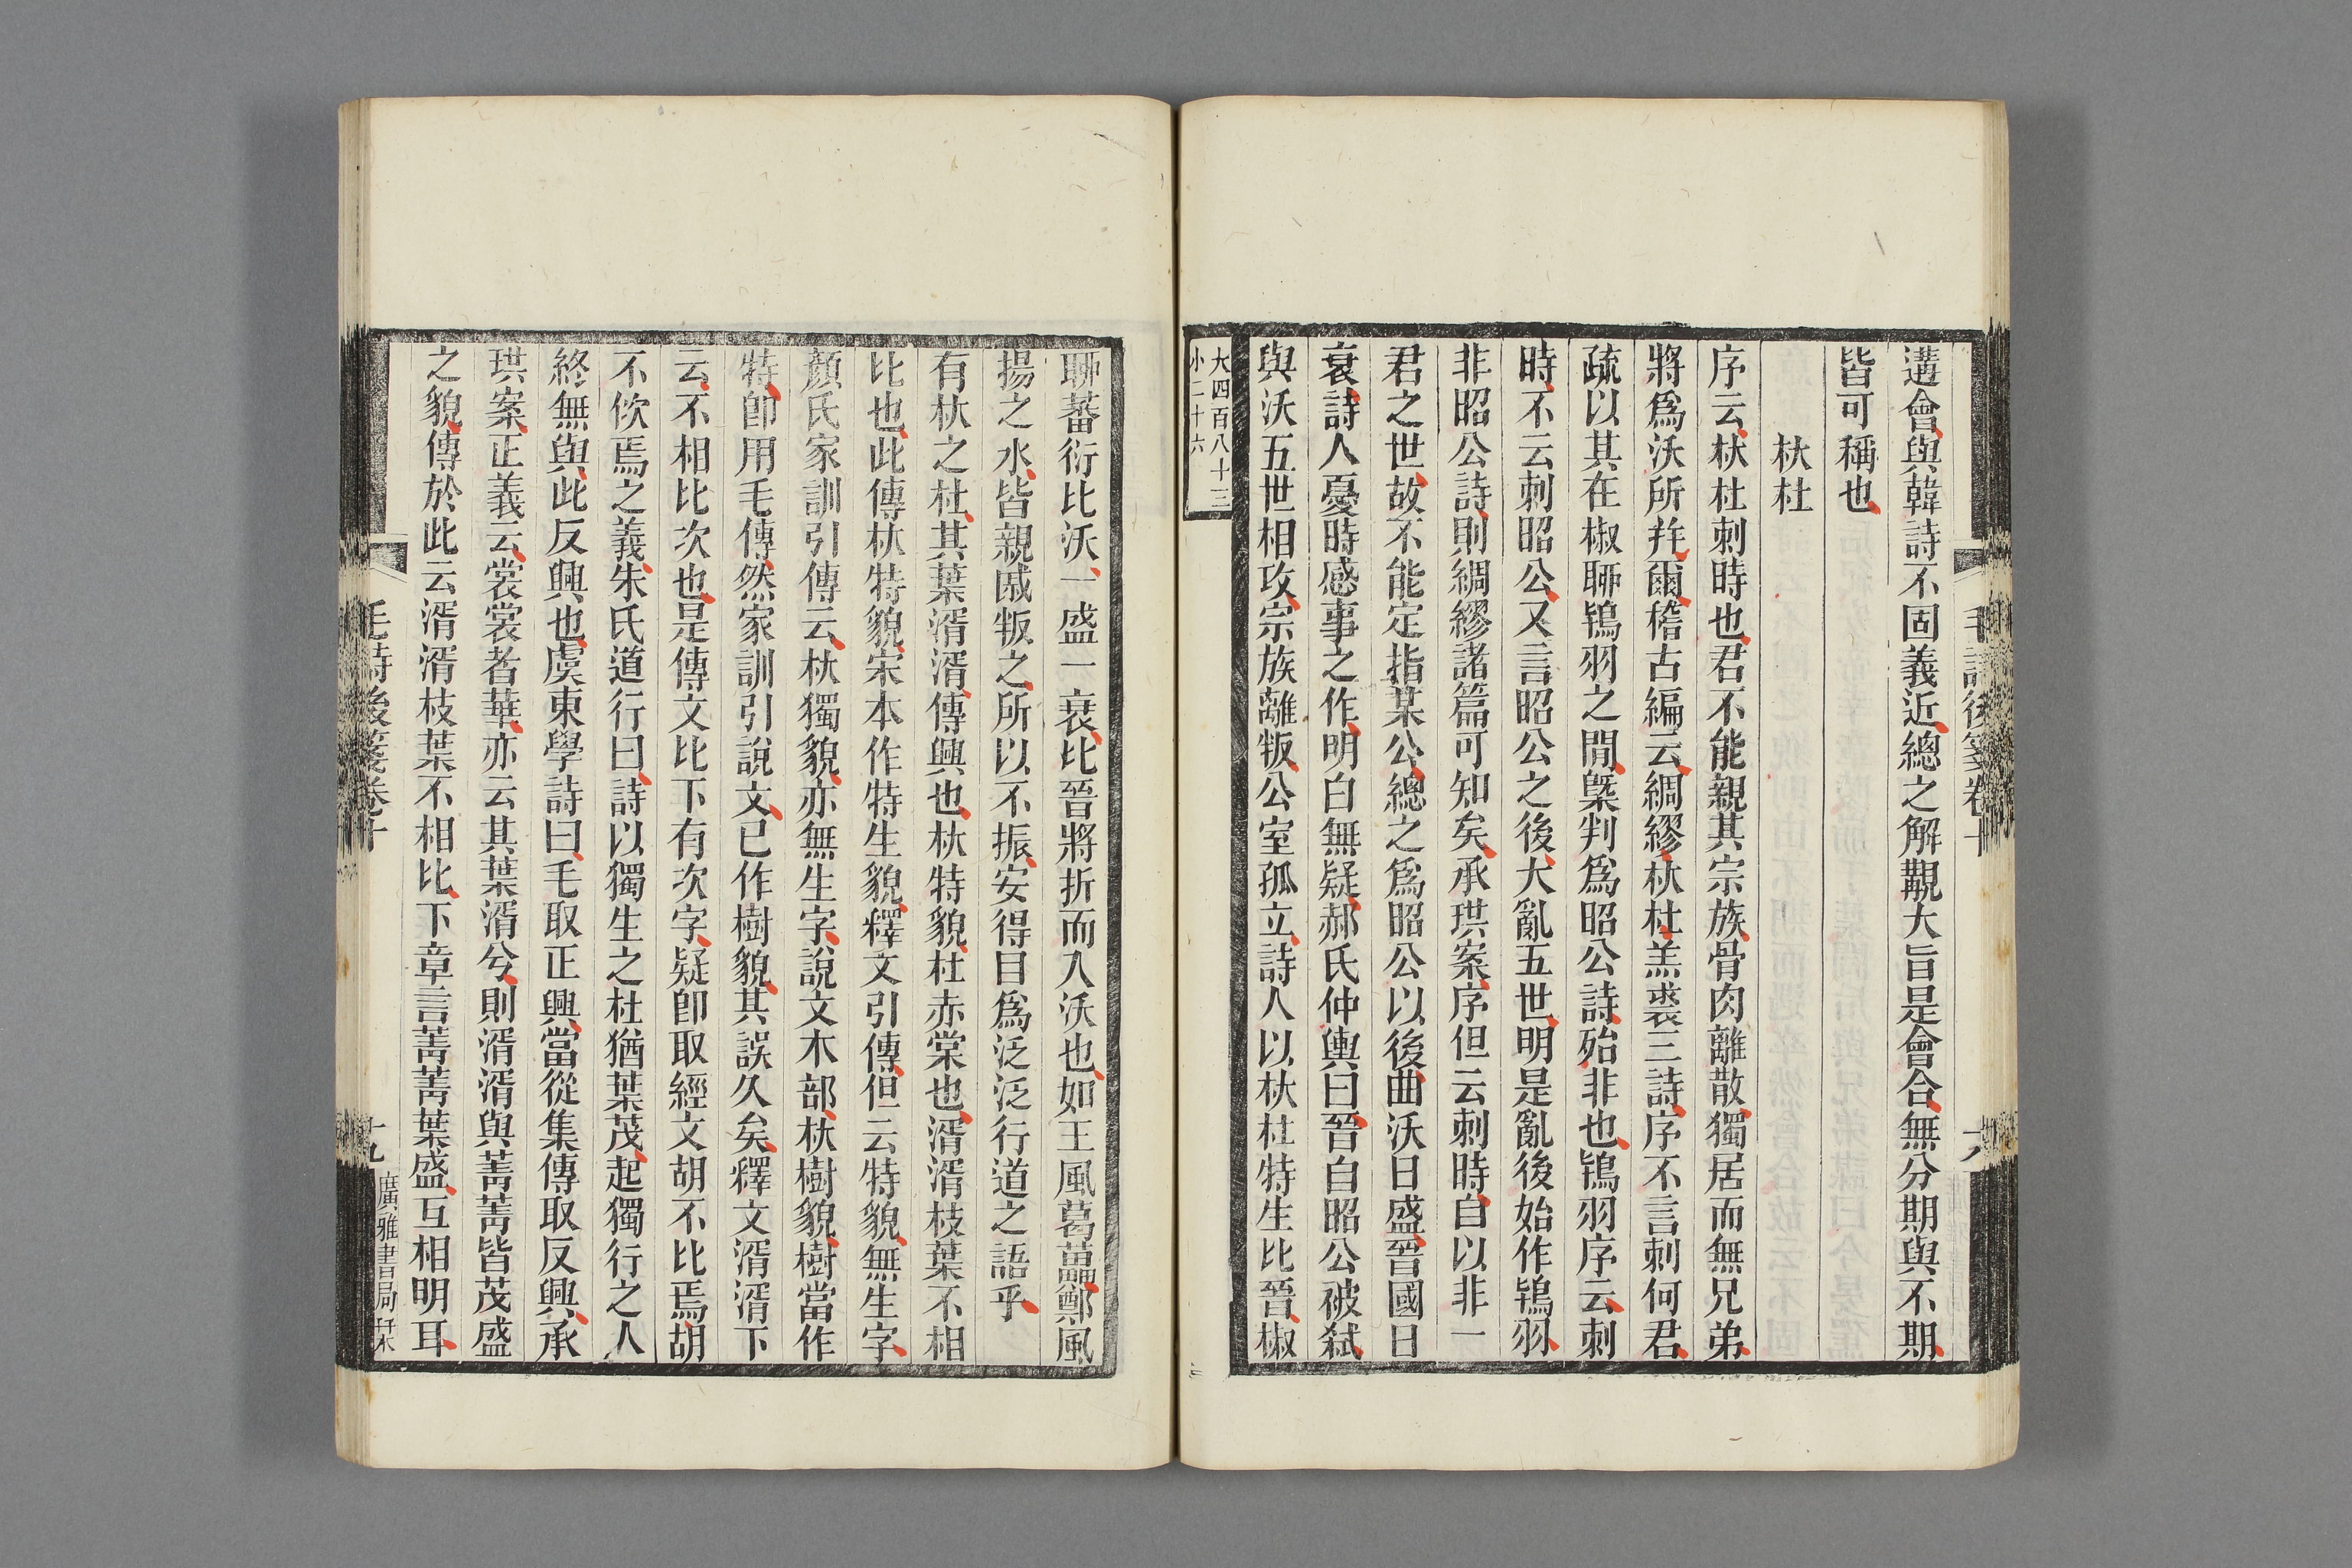 遘會與韓詩不固義近總之解覯大旨是會合無分期與不期
皆可稱也
杕杜
序云杕杜刺時也君不能親其宗族骨肉離散獨居而無兄弟
將爲沃所并爾稽古編云綢繆杕杜羔裘三詩序不言刺何君
疏以其在椒聊鴇羽之閒槩判爲昭公詩殆非也鴇羽序云刺
時不云刺昭公又言昭公之後大亂五世明是亂後始作鴇羽
非昭公詩則綢繆諸篇可知矣承珙案序但云刺時自以非一
君之世故不能定指某公總之爲昭公以後曲沃日盛晉國日
衰詩人憂時感事之作明白無疑郝氏仲輿曰晉自昭公被弑
與沃五世相攻宗族離叛公室孤立詩人以杕杜特生比晉椒
大四百八十三
小二十六
毛詩後箋卷十
聊蕃衍比沃一盛一衰比晉將折而入沃也如王風葛藟鄭風
揚之水皆親戚叛之所以不振安得目爲泛泛行道之語乎
有杕之杜其葉湑湑傳興也杕特貌杜赤棠也湑湑枝葉不相
比也此傳杕特貌宋本作特生貌釋文引傳但云特貌無生字
顏氏家訓引傳云杕獨貌亦無生字說文木部杕樹貌樹當作
特卽用毛傳然家訓引說文已作樹貌其誤久矣釋文湑湑下
云不相比次也是傳文比下有次字疑卽取經文胡不比焉胡
不佽焉之義朱氏道行曰詩以獨生之杜猶葉茂起獨行之人
終無與此反興也虞東學詩曰毛取正興當從集傳取反興承
珙案正義云裳裳者華亦云其葉湑兮則湑湑與菁菁皆茂盛
之貌傳於此云湑湑枝葉不相比下章言菁菁葉盛互相明耳
毛詩後箋卷十
十九
廣雅書局栞